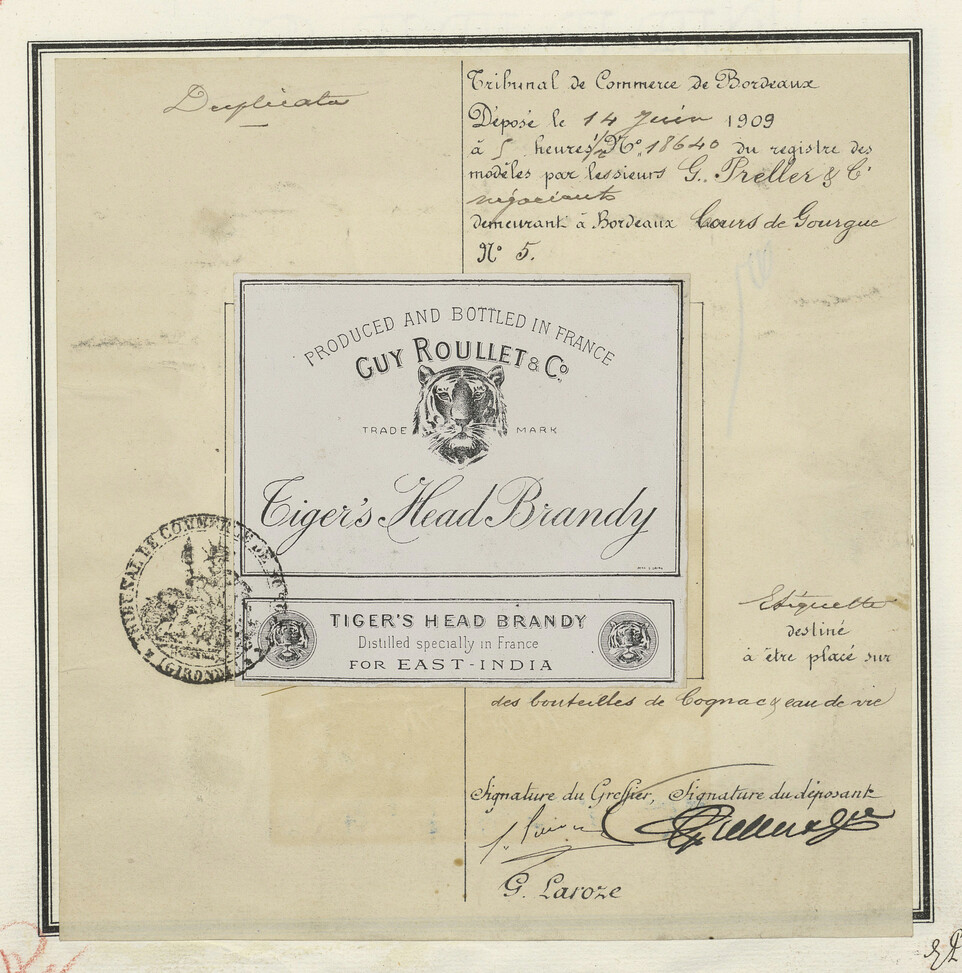 Duplicata
Tribunal de Commerce de Bordeaux
Déposé le 14 Juin 1909
à 5 heures 1/2 Nº 18640 du registre des
modèles par les sieurs G. Preller & Cⁱᵉ
négociants
demeurant à Bordeaux Cours de Gourgue
Nº 5.
PRODUCED AND BOTTLED IN FRANCE
GUY ROULLET & Cº
TRADE MARK
Tiger's Head Brandy
TRIBUNAL DE COMMERCE DE
(GIRONDE)
TIGER'S HEAD BRANDY
Distilled specially in France
FOR EAST-INDIA
Etiquette
destiné
à être placé sur
des bouteilles de Cognac & eau de vie
Signature du Greffier, Signature du déposant
G. Laroze